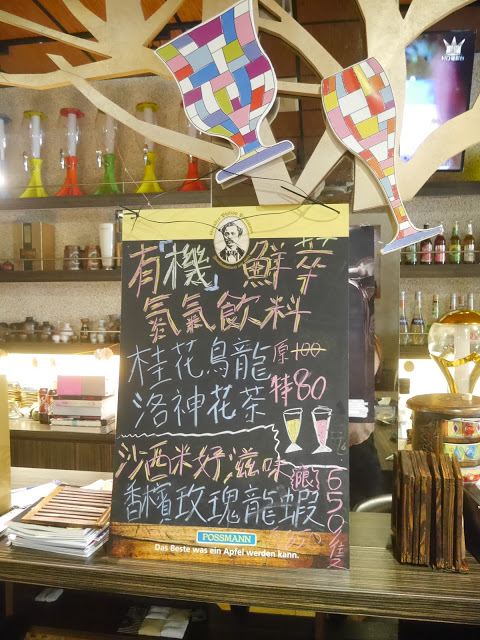 有「機」鮮萃
氮氣飲料
桂花烏龍
洛神花茶
原100
特80
沙西米好滋味
香檳玫瑰龍蝦
650隻
POSSMANN
Das Beste was ein Apfel werden kann.